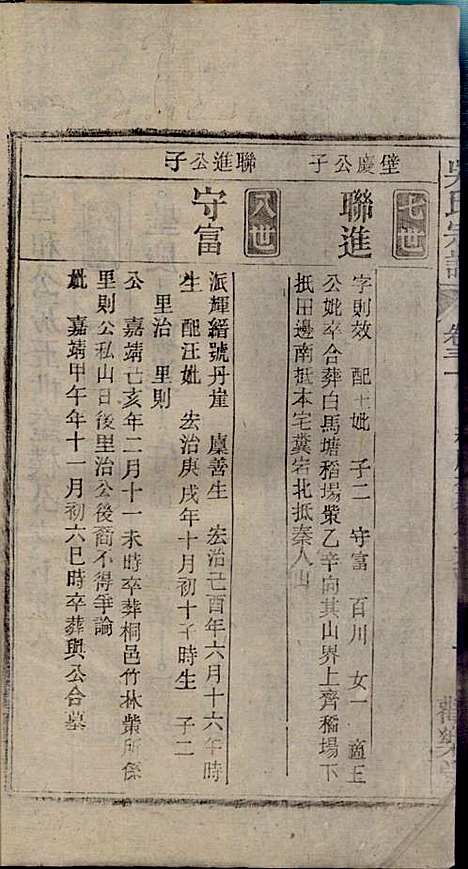 吳氏宗譜
卷三十
壁慶公子
七世
聯進
字則效 配王妣 子二 守富 百川 女一 適王
公妣卒合葬白馬塘稻場塋乙辛向其山界上齊稻場下
抵田邊南抵本宅糞宕北抵秦人山
聯進公子
八世
守富
派輝縉號丹崖 廩善生 宏治己酉年六月十六午時
生 配汪妣 宏治庚戌年十月初十子時生 子二
里治 里則
公 嘉靖己亥年二月十一未時卒葬桐邑竹林塋所係
里則公私山日後里治公後裔不得爭論
妣 嘉靖甲午年十一月初六巳時卒葬與公合墓